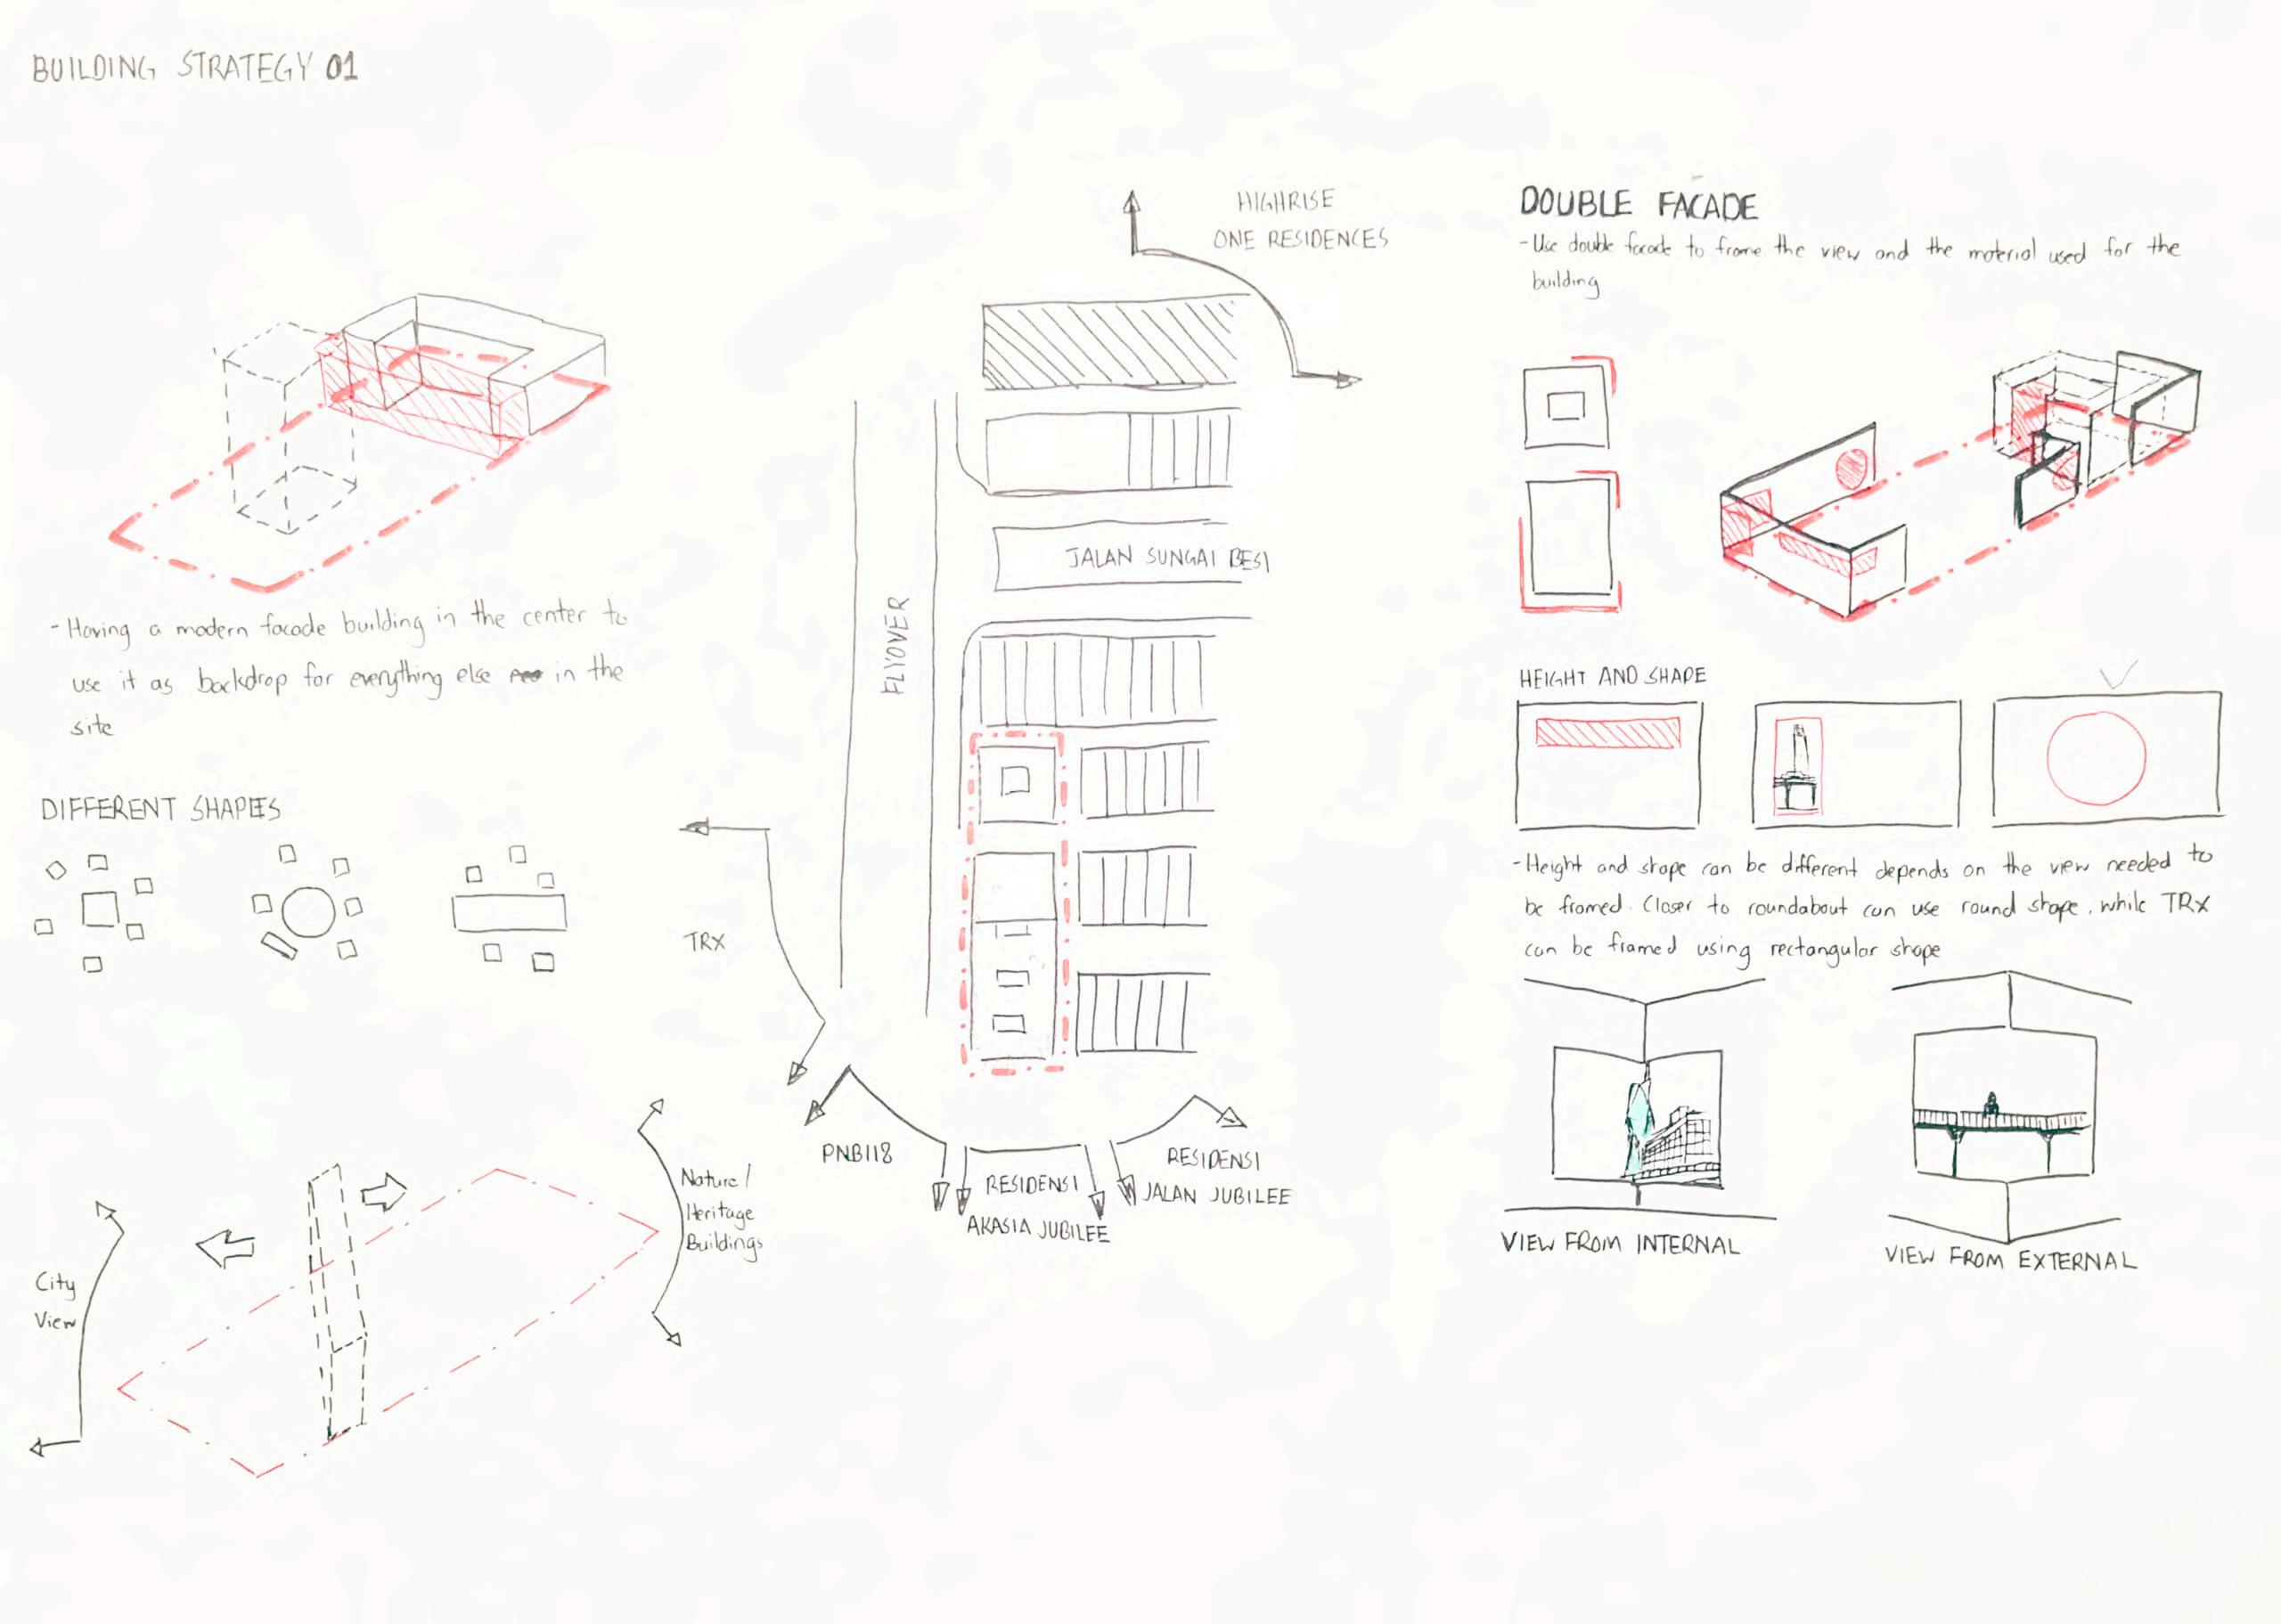 BUILDING STRATEGY 01
- Having a modern facade building in the center to
use it as backdrop for everything else in the
site
DIFFERENT SHAPES
City
View
Nature/
Heritage
Buildings
HIGHRISE
ONE RESIDENCES
JALAN SUNGAI BESI
FLYOVER
TRX
PNB118
RESIDENSI
AKASIA JUBILEE
RESIDENSI
JALAN JUBILEE
DOUBLE FACADE
- Use double facade to frame the view and the material used for the
building
HEIGHT AND SHAPE
- Height and shape can be different depends on the view needed to
be framed. Closer to roundabout can use round shape, while TRX
can be framed using rectangular shape
VIEW FROM INTERNAL
VIEW FROM EXTERNAL